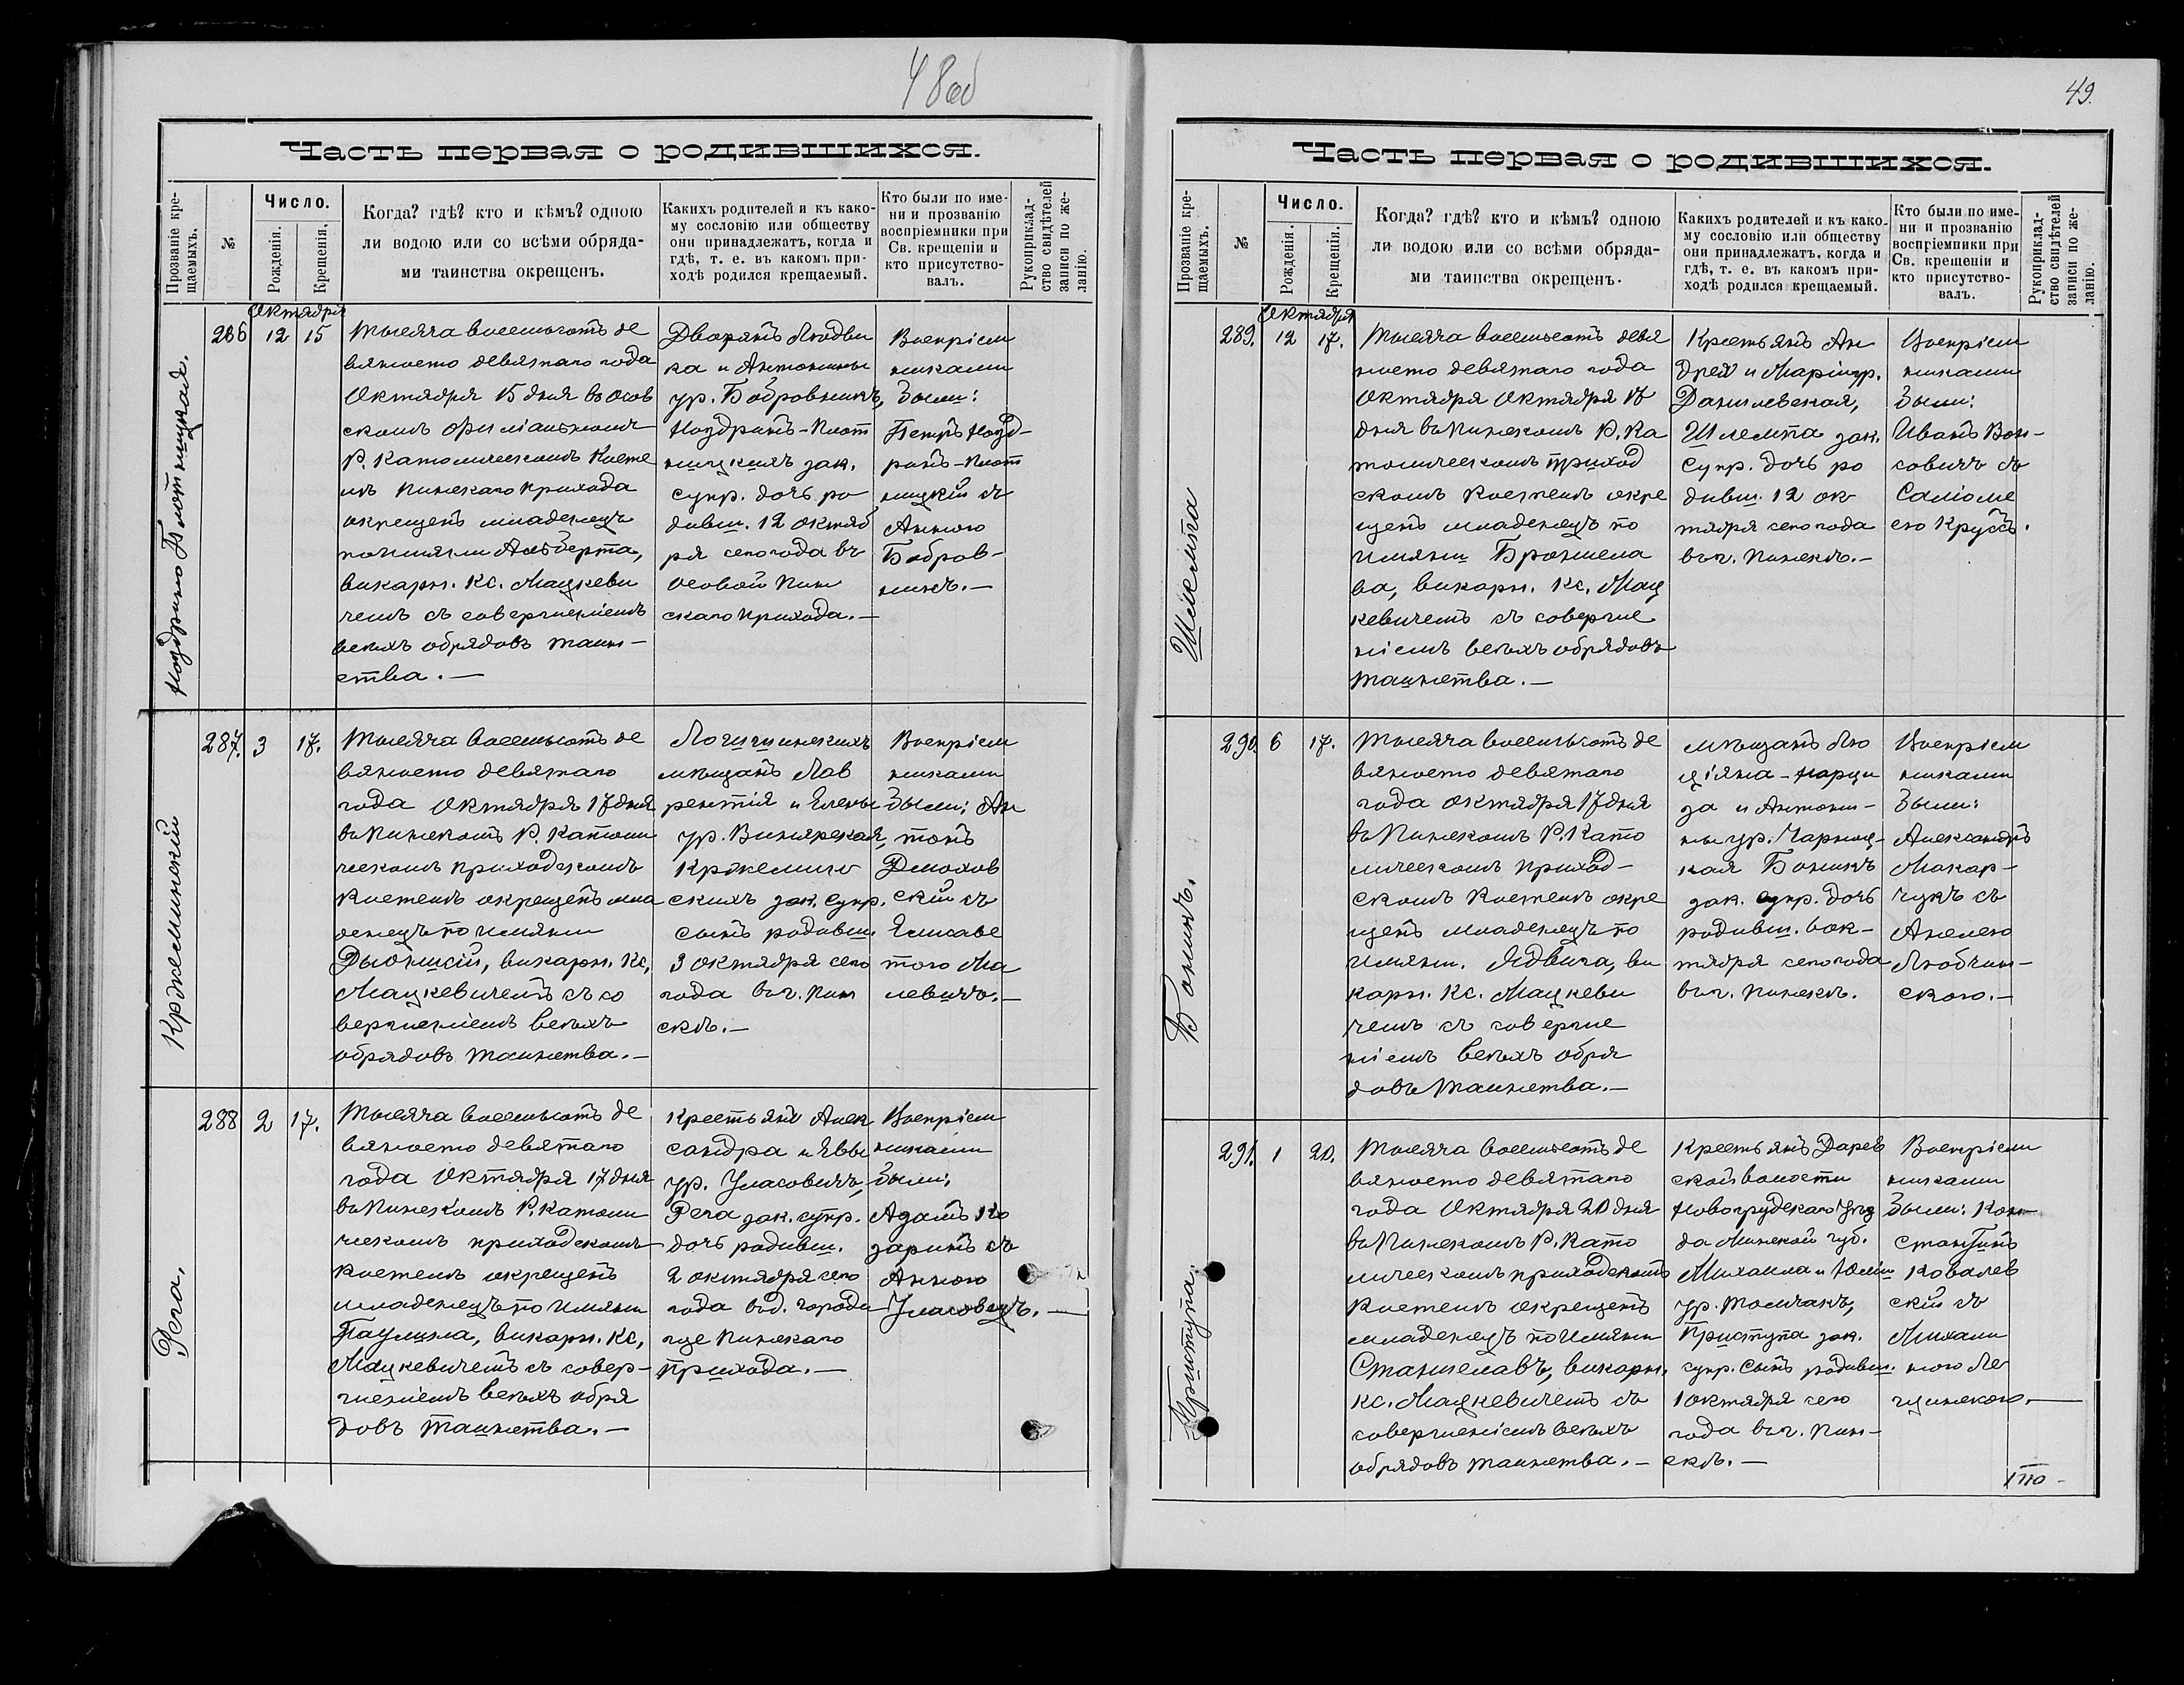 48об
Часть первая о родившихся.
Прозваніе кре-
щаемыхъ.
№
Число.
Рожденія.
Крещенія.
Когда? гдѣ? кто и кѣмъ? одною
ли водою или со всѣми обряда-
ми таинства окрещенъ.
Какихъ родителей и къ како-
му сословію или обществу
они принадлежатъ, когда и
гдѣ, т. е. въ какомъ при-
ходѣ родился крещаемый.
Кто были по име-
ни и прозванію
воспріемники при
Св. крещеніи и
кто присутство-
валъ.
Рукоприклад-
ство свидѣтелей
записи по же-
ланію.
Октября
286 12 15
Тысяча восемьсотъ де
вяносто девятаго года
Октября 15 дня въ Осов
скомъ филіальномъ
Р. Католическомъ Косте
лѣ Пинскаго прихода
окрещенъ младенецъ
по имяни Альберта,
викарн. Кс. Мацкеви
чемъ съ совершеніемъ
всѣхъ обрядовъ таин-
ства.—
Дворянъ Людви
ка и Антонины
ур. Бобровникъ,
Ноздринъ-Плот
ницкихъ зак.
супр. дочь ро
дивш. 12 октяб
ря сего года въ
Осовой Пин
скаго прихода.—
Воспріем
никами
были:
Петръ Нозд-
ринъ-Плот
ницкій съ
Анною
Бобров-
никъ.—
Кржеминскій
287. 3 17.
Тысяча восемьсотъ де
вяносто девятаго
года Октября 17 дня
въ Пинскомъ Р. Католи
ческомъ приходскомъ
Костелѣ окрещенъ мла
денецъ по имяни
Діонисій, викарн. Кс,
Мацкевичемъ съ со
вершеніемъ всѣхъ
обрядовъ таинства.—
Логишинскихъ
мѣщанъ Лав
рентія и Елены
ур. Винярская,
Кржемин
скихъ зак. супр.
сынъ родивш.
3 октября сего
года въ г. Пин
скѣ.—
Воспріем
никами
были: Ан
тонъ
Дмохов
скій съ
Елисаве
тою Ма
левичъ.—
Рега.
288 2 17.
Тысяча восемьсотъ де
вяносто девятаго
года Октября 17 дня
въ Пинскомъ Р. Католи
ческомъ приходскомъ
Костелѣ окрещенъ
младенецъ по имяни
Паулина, викарн. Кс,
Мацкевичемъ съ совер-
шеніемъ всѣхъ обря
довъ таинства.—
Крестьянъ Алек
сандра и Евы
ур. Уласовичъ,
Рега зак. супр.
дочь родивш.
2 октября сего
года въ д. Городи
ще Пинскаго
прихода.—
Воспріем
никами
были:
Адамъ Ко
заринъ съ
Анною
Уласовецъ.—
49.
Часть первая о родившихся.
Прозваніе кре-
щаемыхъ.
№
Число.
Рожденія.
Крещенія.
Когда? гдѣ? кто и кѣмъ? одною
ли водою или со всѣми обряда-
ми таинства окрещенъ.
Какихъ родителей и къ како-
му сословію или обществу
они принадлежатъ, когда и
гдѣ, т. е. въ какомъ при-
ходѣ родился крещаемый.
Кто были по име-
ни и прозванію
воспріемники при
Св. крещеніи и
кто присутство-
валъ.
Рукоприклад-
ство свидѣтелей
записи по же-
ланію.
Октября
Шлемпа
289. 12 17.
Тысяча восемьсотъ девя
носто девятаго года
Октября Октября 17
дня въ Пинскомъ Р. Ка
толическомъ приход
скомъ Костелѣ окре
щенъ младенецъ по
имяни Бронисла
ва, викарн. Кс. Мац
кевичемъ съ соверше
ніемъ всѣхъ обрядовъ
таинства.—
Крестьянъ Ан
дрея и Маріи ур.
Данилевская,
Шлемпа зак.
супр. дочь ро
дивш. 12 ок
тября сего года
въ г. Пинскѣ.—
Воспріем
никами
были:
Иванъ Вой-
совичъ съ
Саломе
ею Крукъ.
Боникъ.
290. 6 17.
Тысяча восемьсотъ де
вяносто девятаго
года октября 17 дня
въ Пинскомъ Р. Като
лическомъ приход-
скомъ Костелѣ окре
щенъ младенецъ по
имяни. Ядвига, ви
карн. Кс. Мацкеви
чемъ съ соверше
ніемъ всѣхъ обря
довъ таинства.—
мѣщанъ Лю
ціяна-Нарци
за и Антони-
ны ур. Чарнец-
кая Боникъ
зак. супр. дочь
родивш. 6 ок-
тября сего года
въ г. Пинскѣ.
Воспріем
никами
были:
Александръ
Макар-
чукъ съ
Анелею
Любчин-
скою.—
Приступа.
291. 1 20.
Тысяча восемьсотъ де
вяносто девятаго
года Октября 20 дня
въ Пинскомъ Р. Като
лическомъ приходскомъ
Костелѣ окрещенъ
младенецъ по имяни
Станиславъ, викарн.
кс. Мацкевичемъ съ
совершеніемъ всѣхъ
обрядовъ таинства.—
Крестьянъ Дарев
ской волости
Новогрудскаго Уѣз
да Минской губ.
Михаила и Юліи
ур. Толчакъ,
Приступа зак.
супр. сынъ родивш.
1 октября сего
года въ г. Пин-
скѣ.—
Воспріем
никами
были: Кон-
стантинъ
Ковалев
скій съ
Михали
ною Ле
щинскою.—